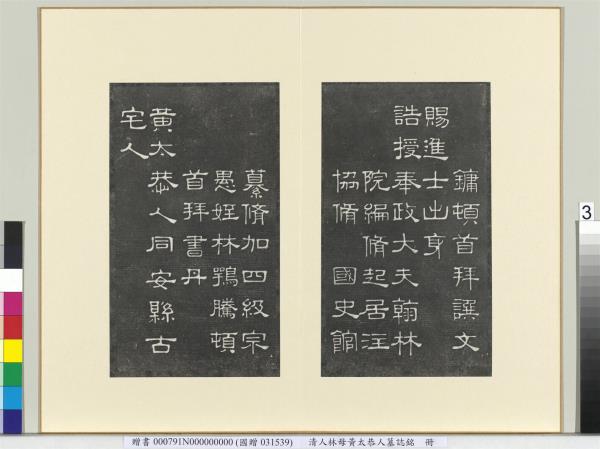 鏞頓首拜譔文
賜進士出身
誥授奉政大夫翰林
院編脩起居注
協脩 國史館
纂脩加四級宗
愚姪林鶚騰頓
首拜書丹
黃太恭人同安縣古
宅人
3
贈書 000791N000000000 (國贈 031539) 清人林母黃太恭人墓誌銘 冊